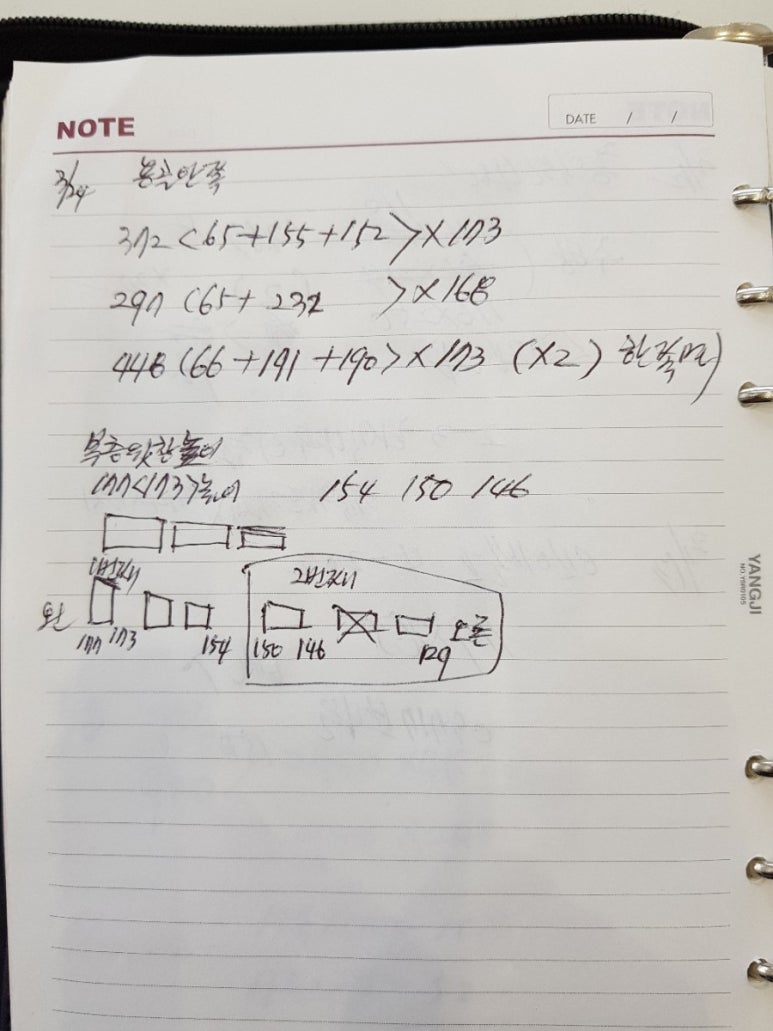 NOTE
DATE / /
3/24 용골안쪽
372 <65+155+152>×173
297 (65+232 >×168
448 (66+191+190>×173 (×2) 한쪽면)
복층윗칸높이
177<173>높이 154 150 146
1번째 2번째
왼 오른
177 173 154 150 146 129
YANGJI